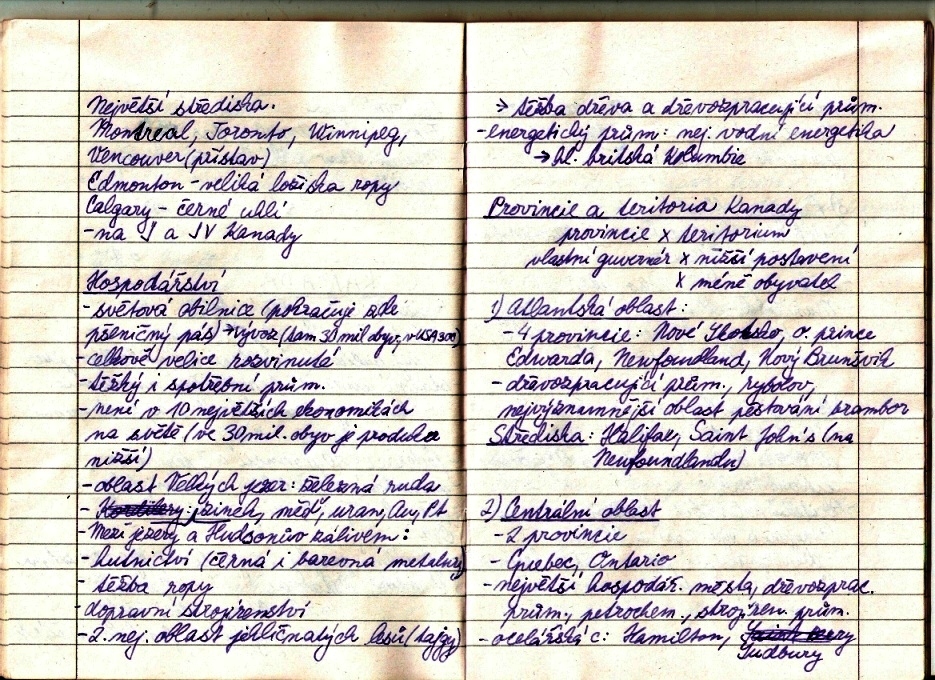 Největší střediska.
Montreal, Toronto, Winnipeg,
Vencouver (přístav)
Edmonton - veliká ložiska ropy
Calgary - černé uhlí
- na J a JV Kanady
Hospodářství
- světová obilnice (pokračuje zde
pšeničný pás) → vývoz (tam 30 mil obyv, v USA 300)
- celkově velice rozvinuté
- těžký i spotřební prům.
- není v 10 největších ekonomikách
na světě (ve 30 mil. obyv je produkce
nižší)
- oblast Velkých jezer: železná ruda
- Kordillery: zinek, měď, uran, Au, Pt
- Mezi jezery a Hudsonův zálivem:
- hutnictví (černá i barevná metalurg)
- těžba ropy
- dopravní strojírenství
- 2. nej. oblast jehličnatých lesů (tajgy)
→ těžba dřeva a dřevozpracující prům.
- energetický prům: nej. vodní energetika
→ hl. britská Kolumbie
Provincie a teritoria Kanady
provincie x teritorium
vlastní guvernér x nižší postavení
x méně obyvatel
1) Atlantská oblast:
- 4 provincie: Nové Skotsko, o. prince
Edwarda, Newfoundland, Nový Brunšvik
- dřevozpracující prům., rybolov,
nejvýznamnější oblast pěstování brambor
Střediska: Halifax, Saint John's (na
Newfoundlandu)
2) Centrální oblast
- 2 provincie
- Quebec, Ontario
- největší hospodář. města, dřevozprac.
prům., petrochem., strojíren. prům.
- ocelářská c: Hamilton,
Sudbury